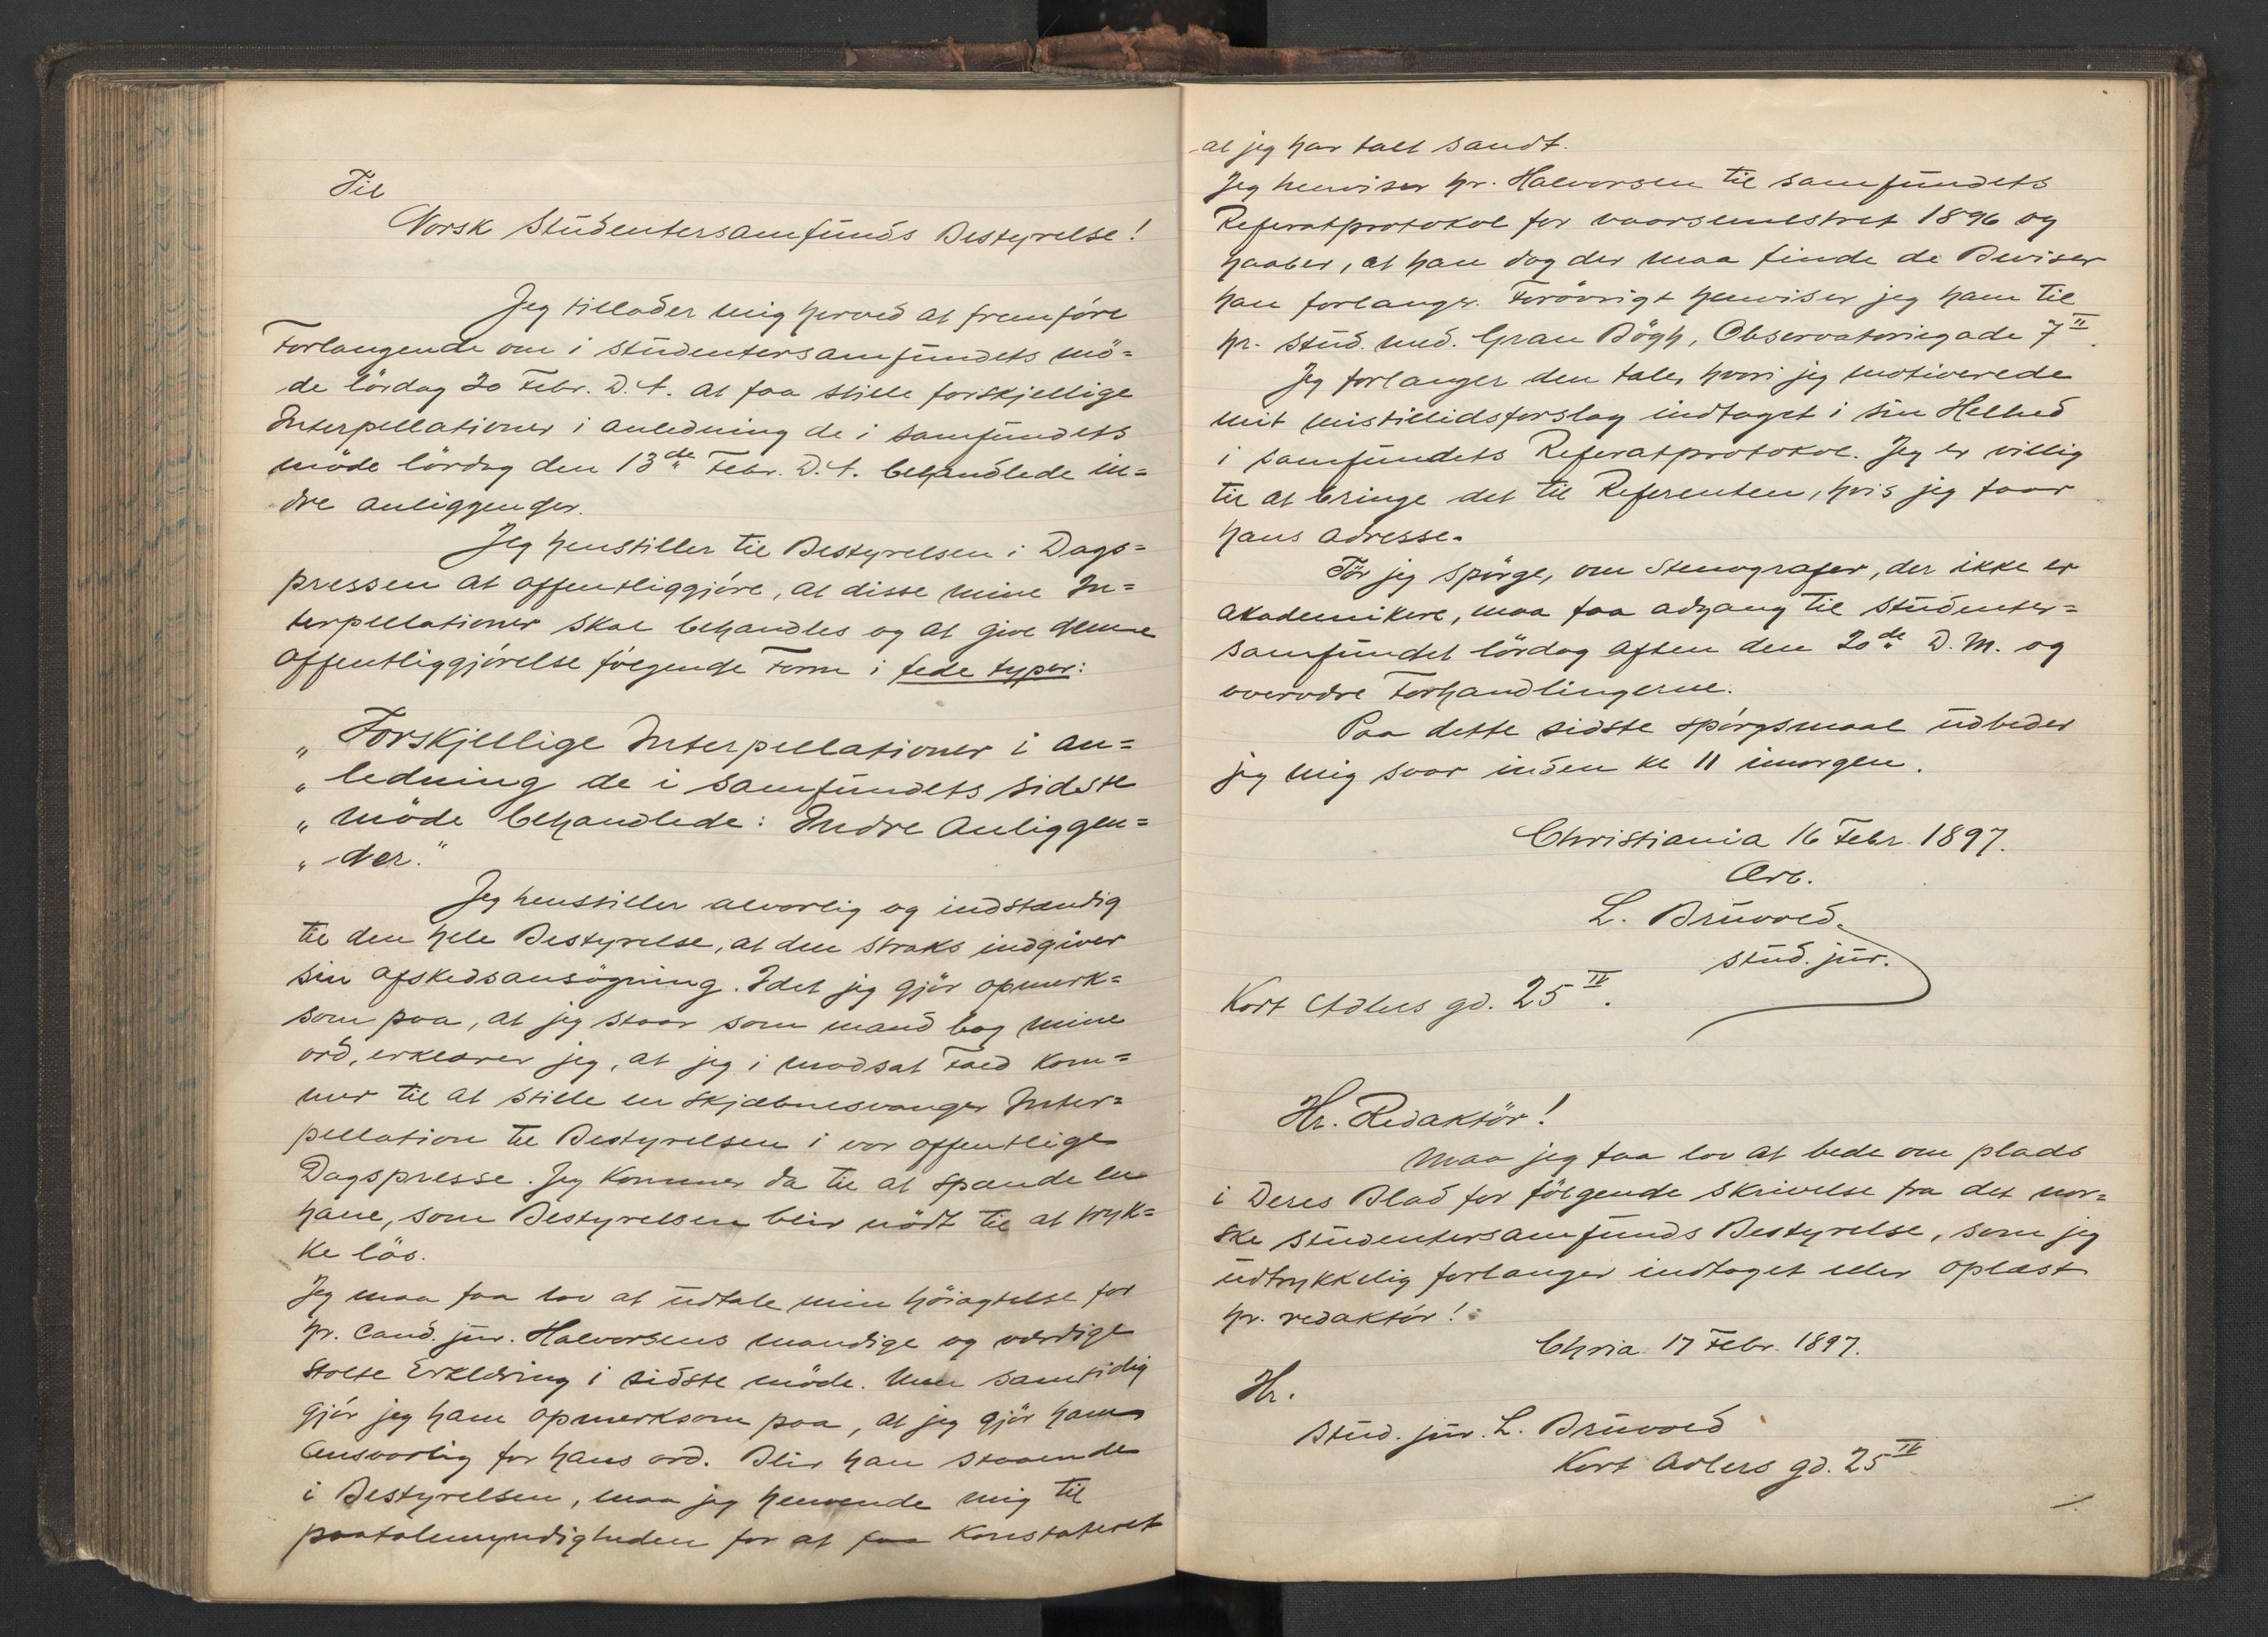 Til
Norsk Studentersamfunds Bestyrelse!
Jeg tillader mig herved at fremföre
Forlangende om i studentersamfundets mö=
de lördag 20 Febr. D. A. at faa stille forskjellige
Interpellationer i anledning de i samfundets
möde lördag den 13de Febr. D. A. behandlede in=
dre anliggender.
Jeg henstiller til Bestyrelsen i Dags=
pressen at offentliggjöre, at disse mine In=
terpellationer skal behandles og at give denne
offentliggjörelse fölgende Form i fede typer:
„ Forskjellige Interpellationer i an=
„ ledning de i samfundets sidste
„ möde behandlede: Indre Anliggen=
„ der."
Jeg henstiller alvorlig og indstændig
til den hele Bestyrelse, at den straks indgiver
sin afskedsansögning. Idet jeg gjör opmerk=
som paa, at jeg staar som mand bag mine
ord, erklærer jeg, at jeg i modsat Fald kom=
mer til at stille en skjæbnesvanger Inter=
pellation til Bestyrelsen i vor offentlige
Dagspresse. Jeg kommer da til at spænde en
hane, som Bestyrelsen blir nödt til at tryk=
ke lös.
Jeg maa faa lov at udtale min höiagtelse for
hr. Cand. jur. Halvorsens mandige og værdige
stolte Erklæring i sidste möde. Men samtidig
gjör jeg ham opmerksom paa, at jeg gjör ham
ansvarlig for hans ord. Blir han staaende
i Bestyrelsen, maa jeg henvende mig til
paatalemyndigheden for at faa konstateret
at jeg har talt sandt.
Jeg henviser hr. Halvorsen til samfundets
Referatprotokol for vaarsemestret 1896 og
haaber, at han dog der maa finde de Beviser
han forlanger. Forövrigt henviser jeg ham til
hr. stud. med. Gran Bögh, Observatoriegade 7 II.
Jeg forlanger den tale, hvori jeg motiverede
mit mistillidsforslag indtaget i sin Helhed
i samfundets Referatprotokol. Jeg er villig
til at bringe det til Referenten, hvis jeg faar
hans adresse.
Tör jeg spörge, om Stenografer, der ikke er
akademikere, maa faa adgang til studenter=
samfundet lördag aften den 20de D. M. og
overvære Forhandlingerne.
Paa dette sidste spörgsmaal udbeder
jeg mig svar inden kl 11 imorgen.
Christiania 16 Febr. 1897.
Ærb.
L. Bruvold.
stud. jur.
Kort Adlers gd. 25 IV.
Hr. Redaktör!
Maa jeg faa lov at bede om plads
i Deres Blad for fölgende skrivelse fra det nor=
ske studentersamfunds Bestyrelse, som jeg
udtrykkelig forlanger indtaget eller oplæst
hr. redaktör!
Chria 17 Febr. 1897.
Hr.
stud. jur. L. Bruvold
Kort Adlers gd. 25 IV